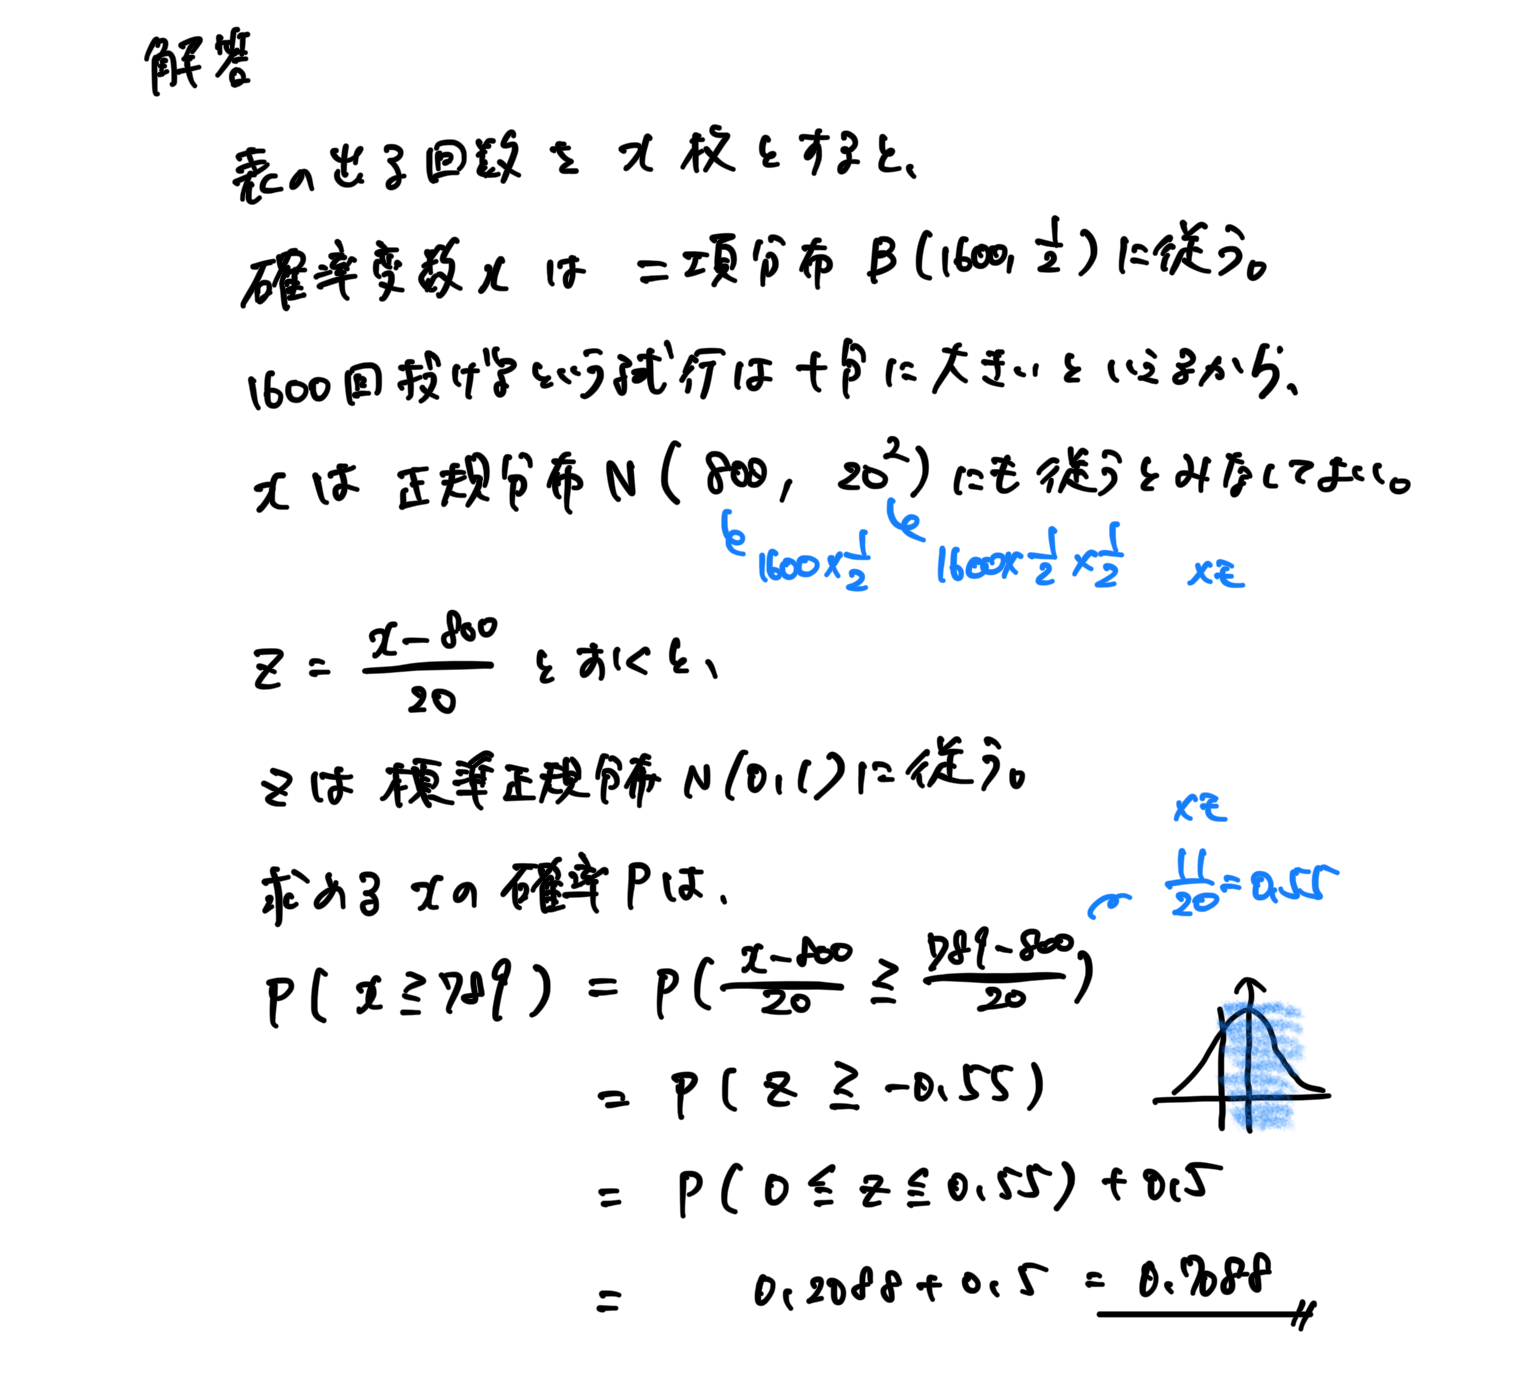 解答
表の出る回数を x 枚とすると、
確率変数 x は 二項分布 B(1600, 1/2)に従う。
1600回投げるという試行は十分に大きいといえるから、
x は 正規分布 N( 800, 20²)にも従うとみなしてよい。
1600×1/2 1600×1/2×1/2 メモ
Z = (x-800)/20 とおくと、
Zは 標準正規分布 N(0,1)に従う。
メモ
11/20=0.55
求める xの 確率 Pは、
P( x≧789 ) = P( (x-800)/20 ≧ (789-800)/20 )
= P( Z ≧ -0.55)
= P( 0 ≦ Z ≦ 0.55) + 0.5
= 0.2088+0.5 = 0.7088